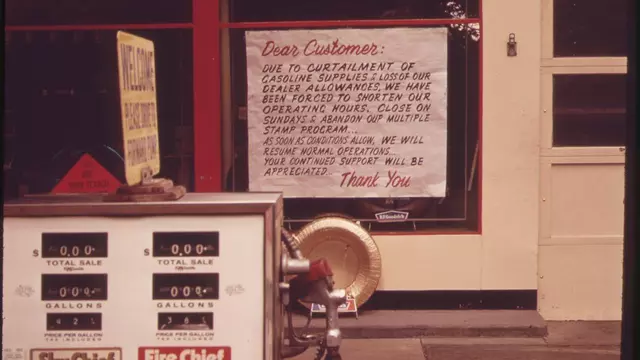 Dear Customer:
DUE TO CURTAILMENT OF
GASOLINE SUPPLIES & LOSS OF OUR
DEALER ALLOWANCES, WE HAVE
BEEN FORCED TO SHORTEN OUR
OPERATING HOURS, CLOSE ON
SUNDAYS & ABANDON OUR MULTIPLE
STAMP PROGRAM...
AS SOON AS CONDITIONS ALLOW, WE WILL
RESUME NORMAL OPERATIONS...
YOUR CONTINUED SUPPORT WILL BE
APPRECIATED.
Thank You
WELCOME
BFGoodrich
$ 0.0.0
TOTAL SALE
0.0.0
GALLONS
PRICE PER GALLON
TAX INCLUDED
Sky Chief
$ 0.0.0
TOTAL SALE
0.0.0
GALLONS
PRICE PER GALLON
TAX INCLUDED
Fire Chief